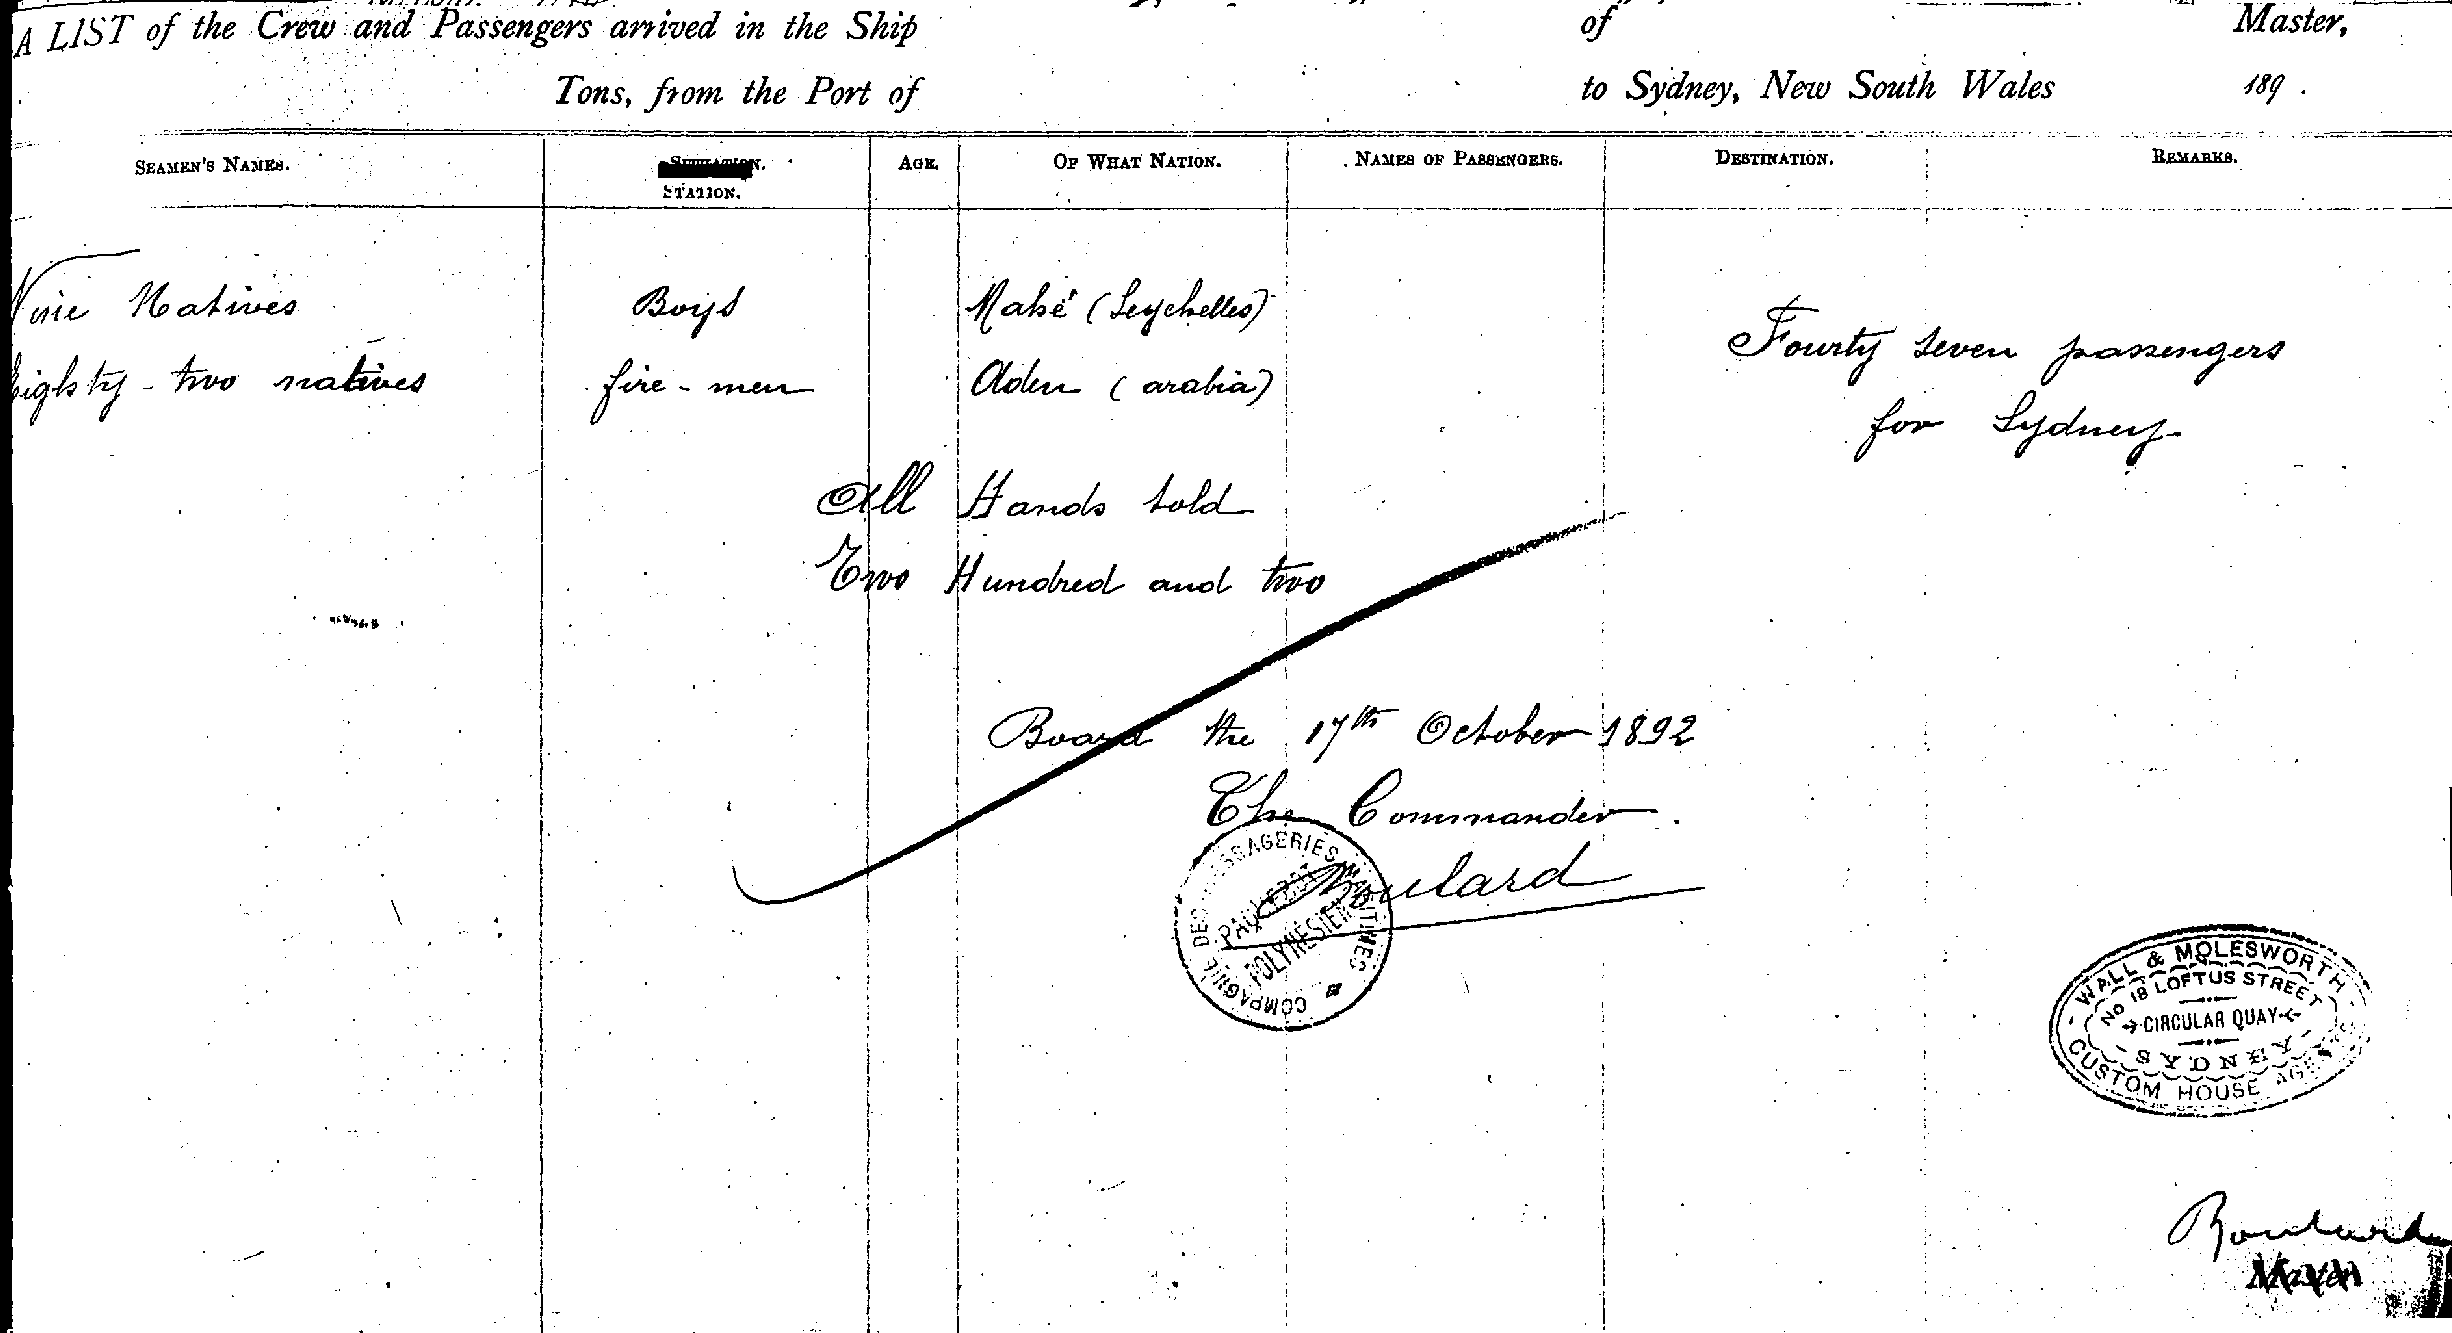 A LIST of the Crew and Passengers arrived in the Ship of Master,
Tons, from the Port of to Sydney, New South Wales 189 .
SEAMEN'S NAMES. SITUATION. AGE. OF WHAT NATION. NAMES OF PASSENGERS. DESTINATION. REMARKS.
STATION.
Nine Natives Boys Mahé (Seychelles)
Fourty seven passengers
Eighty-two natives fire-men Aden (arabia)
for Sydney
All Hands told
Two Hundred and two
Board the 17th October 1892
The Commander.
Boulard
COMPAGNIE DES MESSAGERIES MARITIMES
PAQUEBOT
POLYNESIEN
WALL & MOLESWORTH
No 18 LOFTUS STREET
CIRCULAR QUAY
SYDNEY
CUSTOM HOUSE AGENTS
Boulard
Master